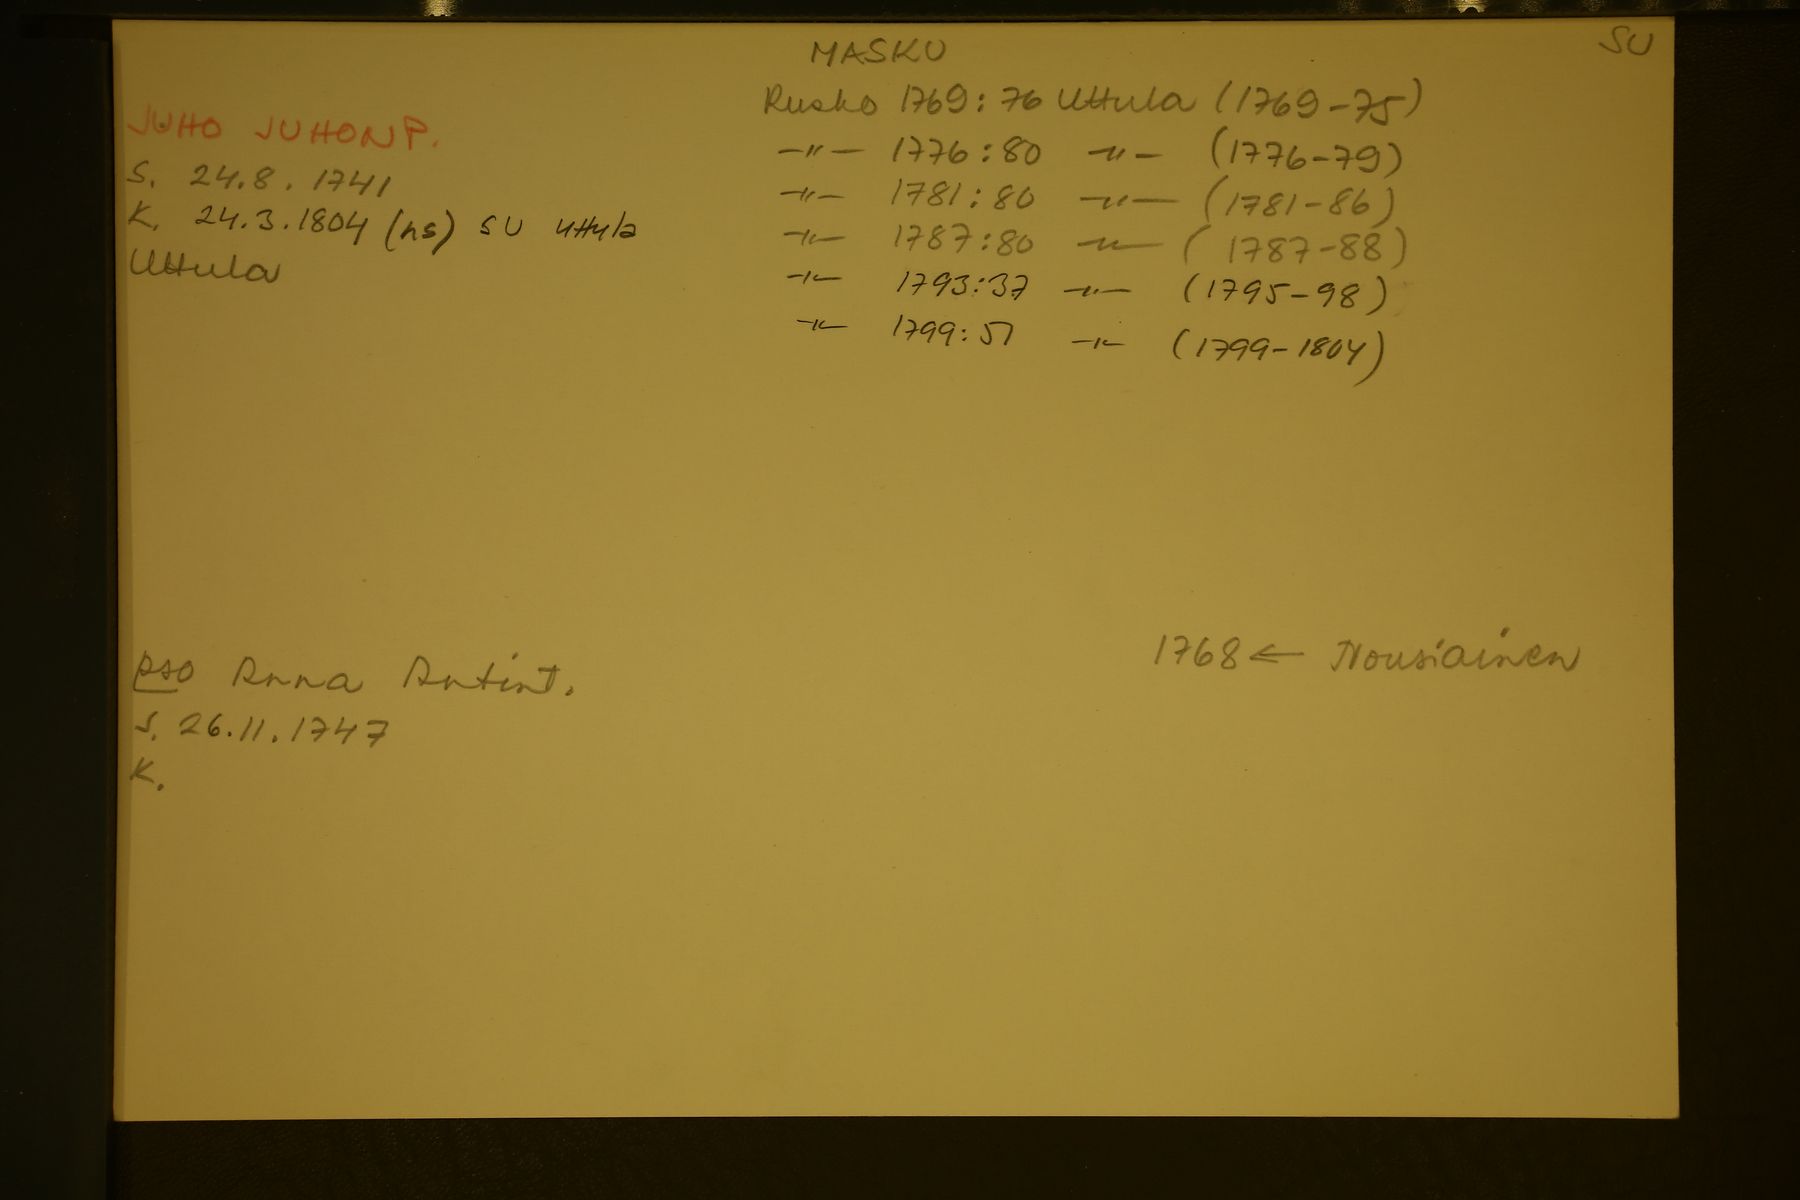 MASKU
SU
JUHO JUHONP.
S. 24.8.1741
K. 24.3.1804 (hs) SU Uttula
Uttula
Rusko 1769:76 Uttula (1769-75)
-"- 1776:80 -"- (1776-79)
-"- 1781:80 -"- (1781-86)
-"- 1787:80 -"- (1787-88)
-"- 1793:37 -"- (1795-98)
-"- 1799:51 -"- (1799-1804)
pso Anna Antint.
S. 26.11.1747
K.
1768 ← Nousiainen